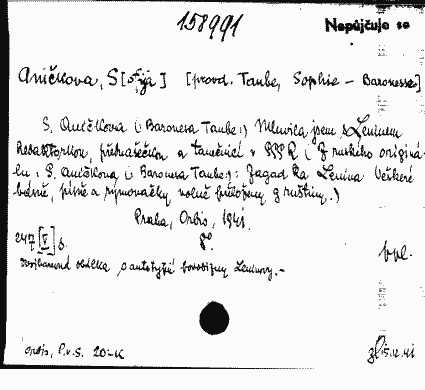 158991
Nepůjčuje se
Aničkova, S[ofija] [provd. Taube, Sophie - Baronesse]
S. Aničkova (: Baronesa Taube:) Mluvila jsem s Leninem
Redaktorkou, překladatelkou a tanečnicí v SSSR (Z ruského originá-
lu: S. Aničkova (: Baronesa Taube:): Zagadka Lenina. Veškeré
básně, písně a rýmovačky volně přeloženy z ruštiny.)
Praha, Orbis, 1941.
247 [V] s. 8°
obálka s autotypií Leninovy.-
Orbis, P.v.S. 20-K
15.12.41